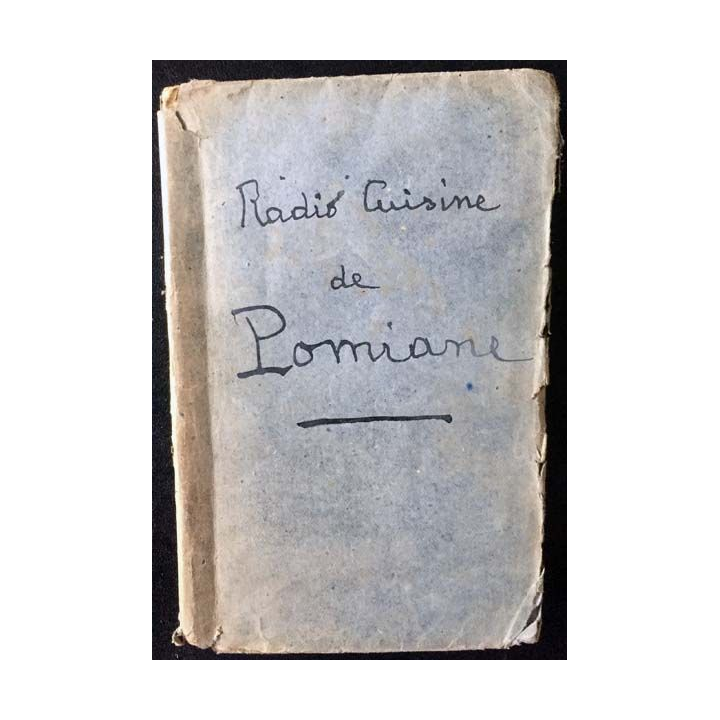 Radio Cuisine
de
Pomiane